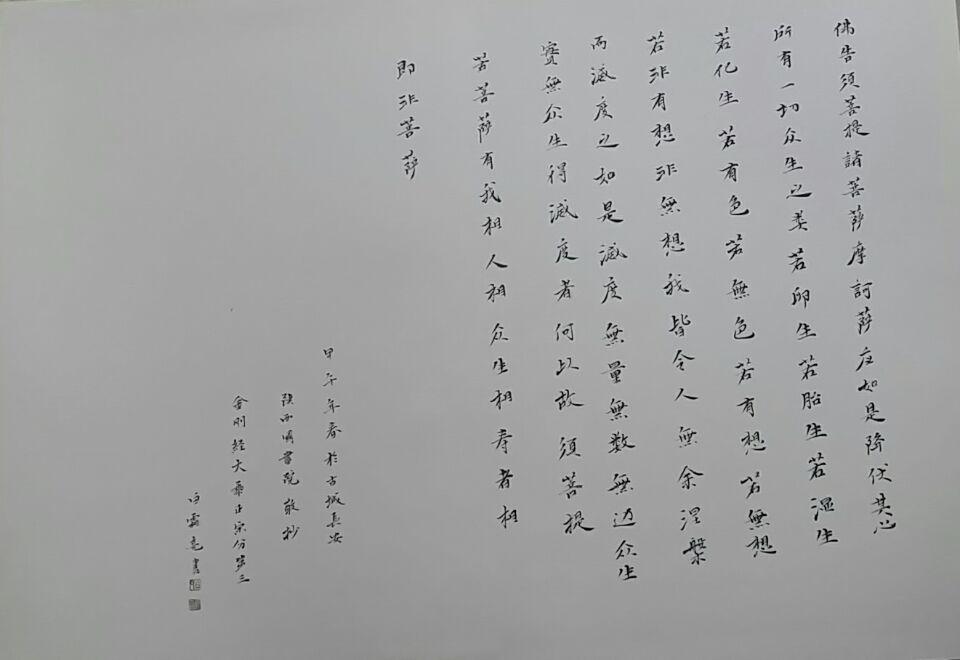 佛告须菩提諸菩萨摩訶萨应如是降伏其心
所有一切众生之类若卵生若胎生若湿生
若化生若有色若無色若有想若無想
若非有想非無想我皆令入無余涅槃
而滅度之如是滅度無量無数無边众生
實無众生得滅度者何以故须菩提
若菩萨有我相人相众生相寿者相
即非菩萨
甲午年春於古城長安
陕西 書院敬抄
金刚经大乘正宗分第三
白 亮書